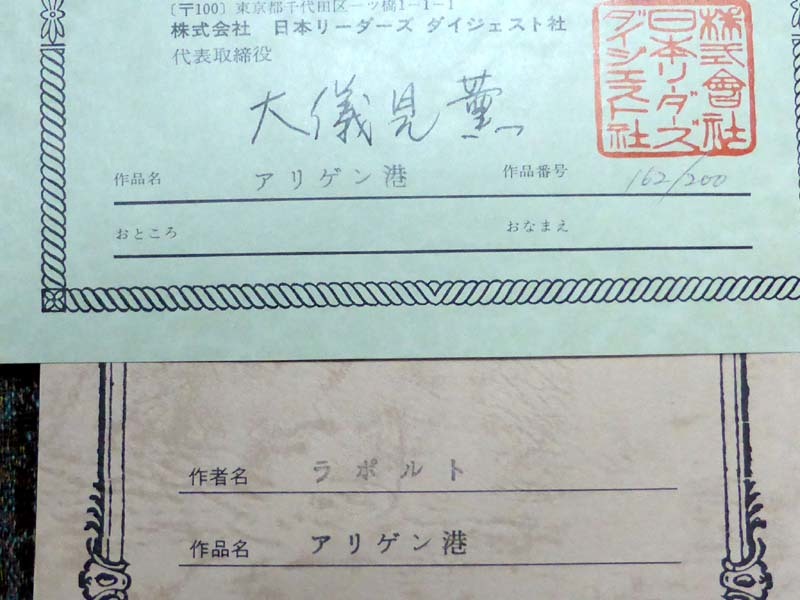 〔〒100〕東京都千代田区一ツ橋1-1-1
株式会社 日本リーダーズ ダイジェスト社
代表取締役
大儀見薫
株式會社
日本リーダーズ
ダイジェスト社
作品名 アリゲン港 作品番号 162/200
おところ おなまえ
作者名 ラポルト
作品名 アリゲン港